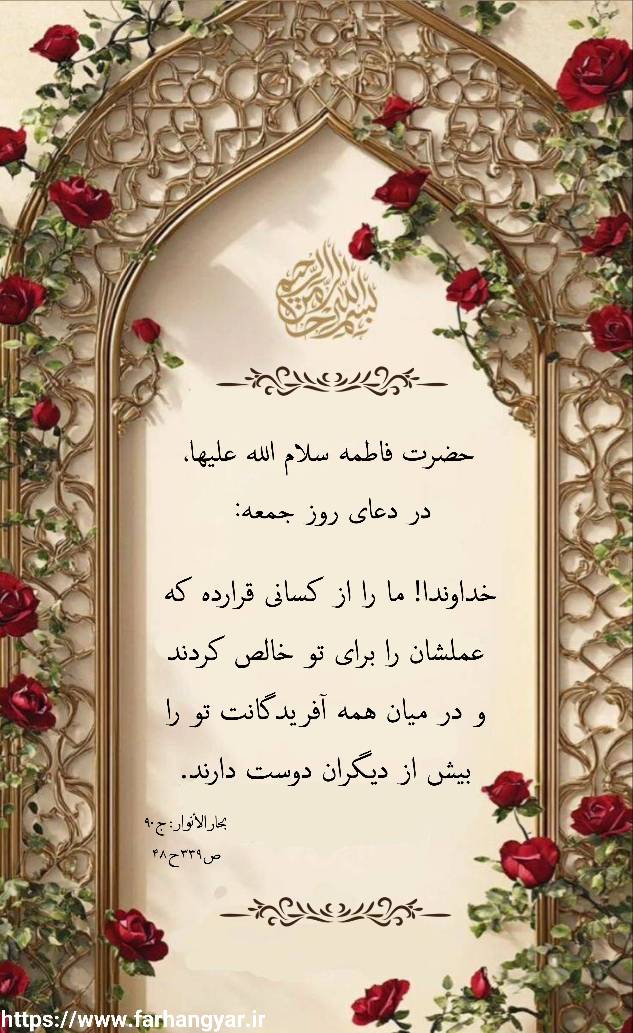 بسم الله الرحمن الرحیم
حضرت فاطمه سلام الله علیها،
در دعای روز جمعه:
خداوندا! ما را از کسانی قرارده که
عملشان را برای تو خالص کردند
و در میان همه آفریدگانت تو را
بیش از دیگران دوست دارند.
بحارالأنوار: ج۹۰
ص۳۳۹ح۴۸
https://www.farhangyar.ir